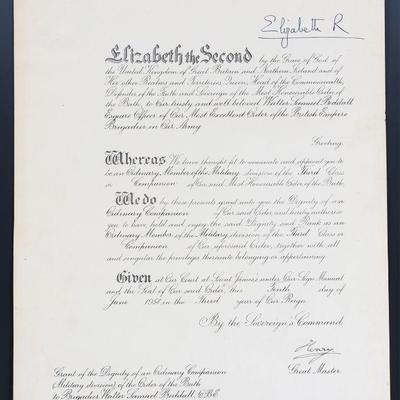 Elizabeth R
Elizabeth the Second by the Grace of God of
the United Kingdom of Great Britain and Northern Ireland and of
Her other Realms and Territories Queen, Head of the Commonwealth,
Defender of the Faith and Sovereign of the Most Honourable Order of
the Bath, to Our trusty and well beloved Walter Samuel Beddall
Esquire Officer of Our Most Excellent Order of the British Empire
Brigadier in Our Army
Greeting
Whereas We have thought fit to nominate and appoint you to
be an Ordinary Member of the Military division of the Third Class
or Companion of Our said Most Honourable Order of the Bath,
We do by these presents grant unto you the Dignity of an
Ordinary Companion of Our said Order, and hereby authorise
you to have, hold and enjoy the said Dignity and Rank as an
Ordinary Member of the Military division of the Third Class or
Companion of Our aforesaid Order, together with all
and singular the privileges thereunto belonging or appertaining.
Given at Our Court at Saint James's under Our Sign Manual
and the Seal of Our said Order, this Tenth day of
June 1954 in the Third year of Our Reign.
By the Sovereign's Command.
Henry
Great Master
Grant of the Dignity of an Ordinary Companion
(Military division) of the Order of the Bath
to Brigadier Walter Samuel Beddall, O.B.E.